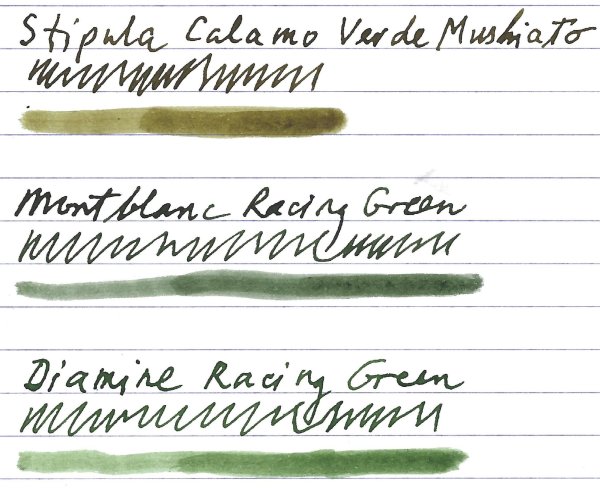 Stipula Calamo Verde Mushiato
Montblanc Racing Green
Diamine Racing Green